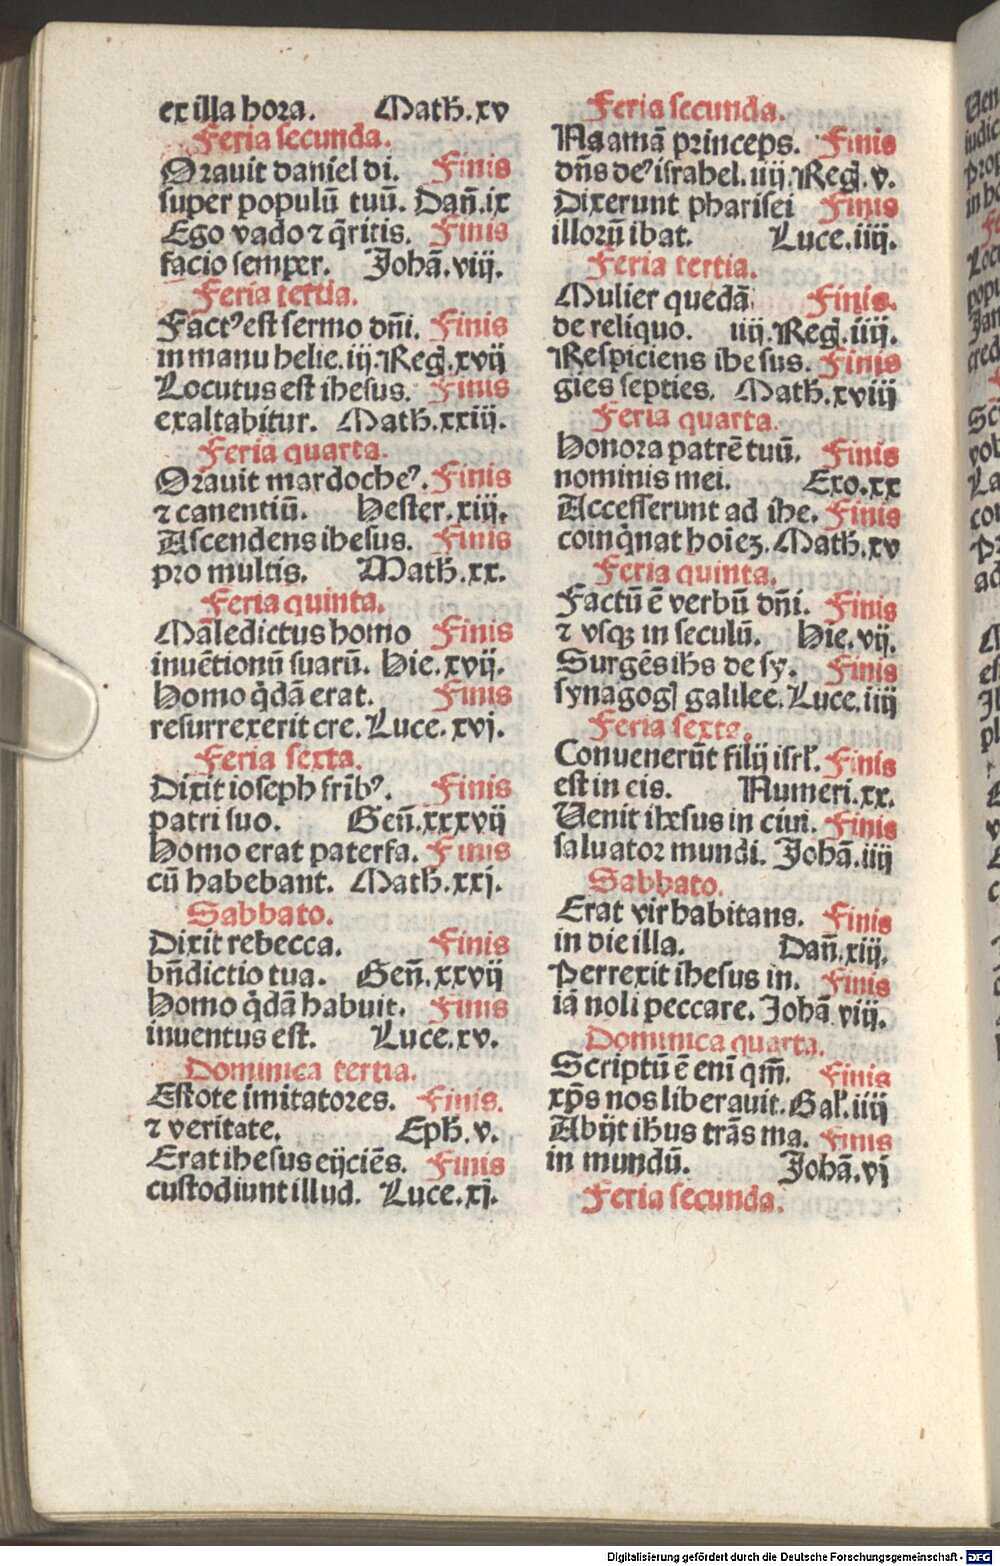 ex illa hora. Math̄.xv
Feria secunda.
Orauit daniel di. Finis
super populū tuū. Dan̄.ix
Ego vado ⁊ q̄ritis. Finis
facio semper. Johā.viij.
Feria tertia.
Factꝰ est sermo dn̄i. Finis
in manu helie.iij.Reḡ.xvij
Locutus est ihesus. Finis
exaltabitur. Math̄.xxiij.
Feria quarta.
Orauit mardocheꝰ. Finis
⁊ canentiū. Hester.xiij.
Ascendens ihesus. Finis
pro multis. Math̄.xx.
Feria quinta.
Maledictus homo Finis
inuētionū suarū. Hie.xvij.
Homo q̄dā erat. Finis
resurrexerit cre. Luce.xvj.
Feria sexta.
Dixit ioseph frībꝰ. Finis
patri suo. Gen̄.xxxvij
Homo erat paterfa. Finis
cū habebant. Math̄.xxj.
Sabbato.
Dixit rebecca. Finis
bn̄dictio tua. Gen̄.xxvij
Homo q̄dā habuit. Finis
inuentus est. Luce.xv.
Dominica tertia.
Estote imitatores. Finis.
⁊ veritate. Eph̄.v.
Erat ihesus eijciēs. Finis
custodiunt illud. Luce.xj.
Feria secunda.
Naamā princeps. Finis
dn̄s deꝰ israhel.iiij.Reḡ.v.
Dixerunt pharisei Finis
illorū ibat. Luce.iiij.
Feria tertia.
Mulier quedā Finis.
de reliquo. iiij.Reḡ.iiij.
Respiciens ihesus. Finis
gies septies. Math̄.xviij
Feria quarta.
Honora patrē tuū. Finis
nominis mei. Exo.xx
Accesserunt ad ihe. Finis
coinq̄nat hoieꝫ. Math̄.xv
Feria quinta.
Factū ē verbū dn̄i. Finis
⁊ vsqꝫ in seculū. Hie.vij.
Surgēs ihs de sy. Finis
synagogꝭ galilee. Luce.iiij
Feria sexta.
Conuenerūt filij isrl̄. Finis
est in eis. Numeri.xx.
Uenit ihesus in ciui. Finis
saluator mundi. Johā.iiij
Sabbato.
Erat vir habitans. Finis
in die illa. Dan̄.xiij.
Perrexit ihesus in. Finis
iā noli peccare. Johā viij.
Dominica quarta.
Scriptū ē eni qm̄. Finis
xp̄s nos liberauit. Gal̄.iiij
Abijt ihus trās ma. Finis
in mundū. Johā.vj
Feria secunda.
Digitalisierung gefördert durch die Deutsche Forschungsgemeinschaft - DFG